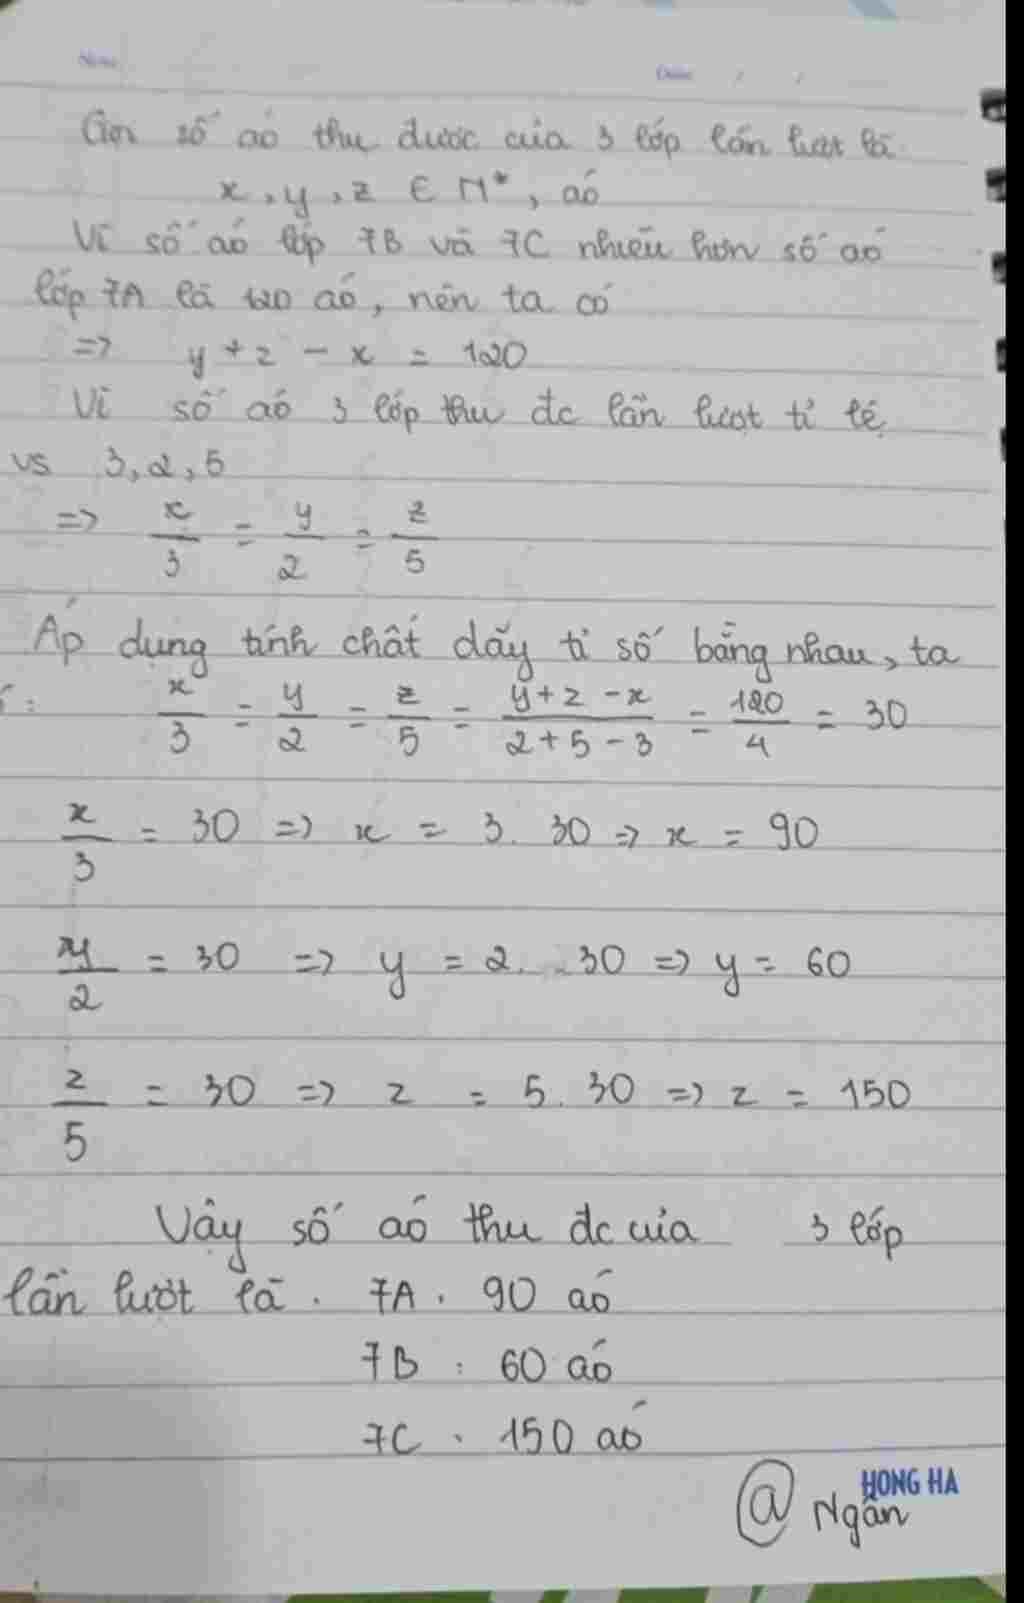 Gọi số áo thu được của 3 lớp lần lượt là
x, y, z ∈ N*, áo
Vì số áo lớp 7B và 7C nhiều hơn số áo
lớp 7A là 120 áo, nên ta có
=> y + z - x = 120
Vì số áo 3 lớp thu đc lần lượt tỉ lệ
vs 3, 2, 5
=> x/3 = y/2 = z/5
Áp dụng tính chất dãy tỉ số bằng nhau, ta
x/3 = y/2 = z/5 = (y + z - x)/(2 + 5 - 3) = 120/4 = 30
x/3 = 30 => x = 3. 30 => x = 90
y/2 = 30 => y = 2. 30 => y = 60
z/5 = 30 => z = 5. 30 => z = 150
Vậy số áo thu đc của 3 lớp
lần lượt là. 7A. 90 áo
7B : 60 áo
7C . 150 áo
HONG HA
@ Ngân